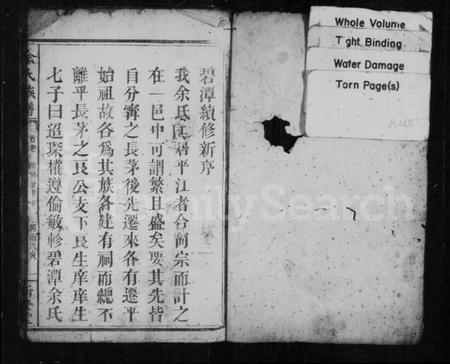 Whole Volume
Tight Binding
Water Damage
Torn Page(s)
碧潭續修新序
我余氏居平江者合同宗而計之
在一邑中可謂繁且盛矣要其先皆
自分寧之長茅後先遷來各有遷平
始祖故各為其族各建有祠而總不
離平長茅之艮公支下艮生庠庠生
七子曰迢琛權遵偷敏軫碧潭余氏
余氏族譜
FamilySearch